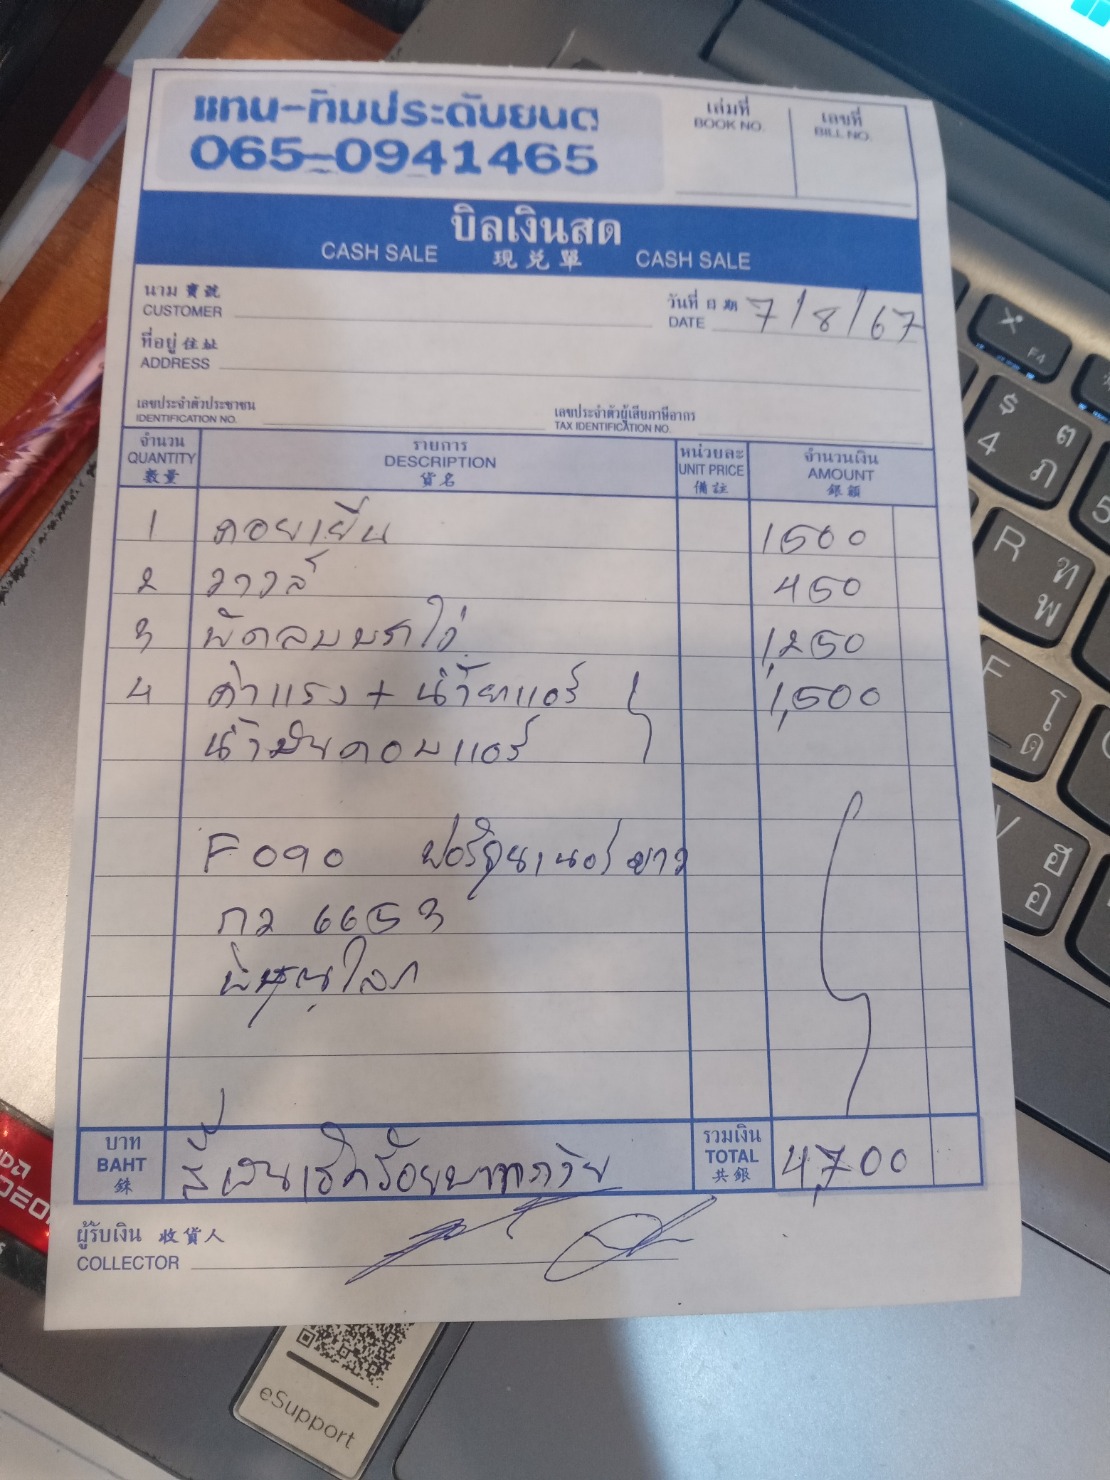 แทน-ทิมประดับยนต์
065-0941465
เล่มที่
BOOK NO.
เลขที่
BILL NO.
บิลเงินสด
CASH SALE 現兌單 CASH SALE
นาม 寶號
CUSTOMER
วันที่ 日期
DATE 7/8/67
ที่อยู่ 住址
ADDRESS
เลขประจำตัวประชาชน
IDENTIFICATION NO.
เลขประจำตัวผู้เสียภาษีอากร
TAX IDENTIFICATION NO.
จำนวน
QUANTITY
數量
รายการ
DESCRIPTION
貨名
หน่วยละ
UNIT PRICE
備註
จำนวนเงิน
AMOUNT
銀額
1 คอยเย็น 1500
2 วาวล์ 450
3 พัดลมมอ 1,250
4 ค่าแรง + น้ำยาแอร์ 1,500
น้ำมันคอมแอร์
F090 ฟอร์จูนเนอร์ ขาว
กว 6653
พิษณุโลก
บาท
BAHT
銖
สี่พันเจ็ดร้อยบาทถ้วน
รวมเงิน
TOTAL
共銀
4,700
ผู้รับเงิน 收貨人
COLLECTOR
$
4
ต
ภ
5
R
ท
พ
F
โ
ด
V
ฮ
อ
F4
eSupport